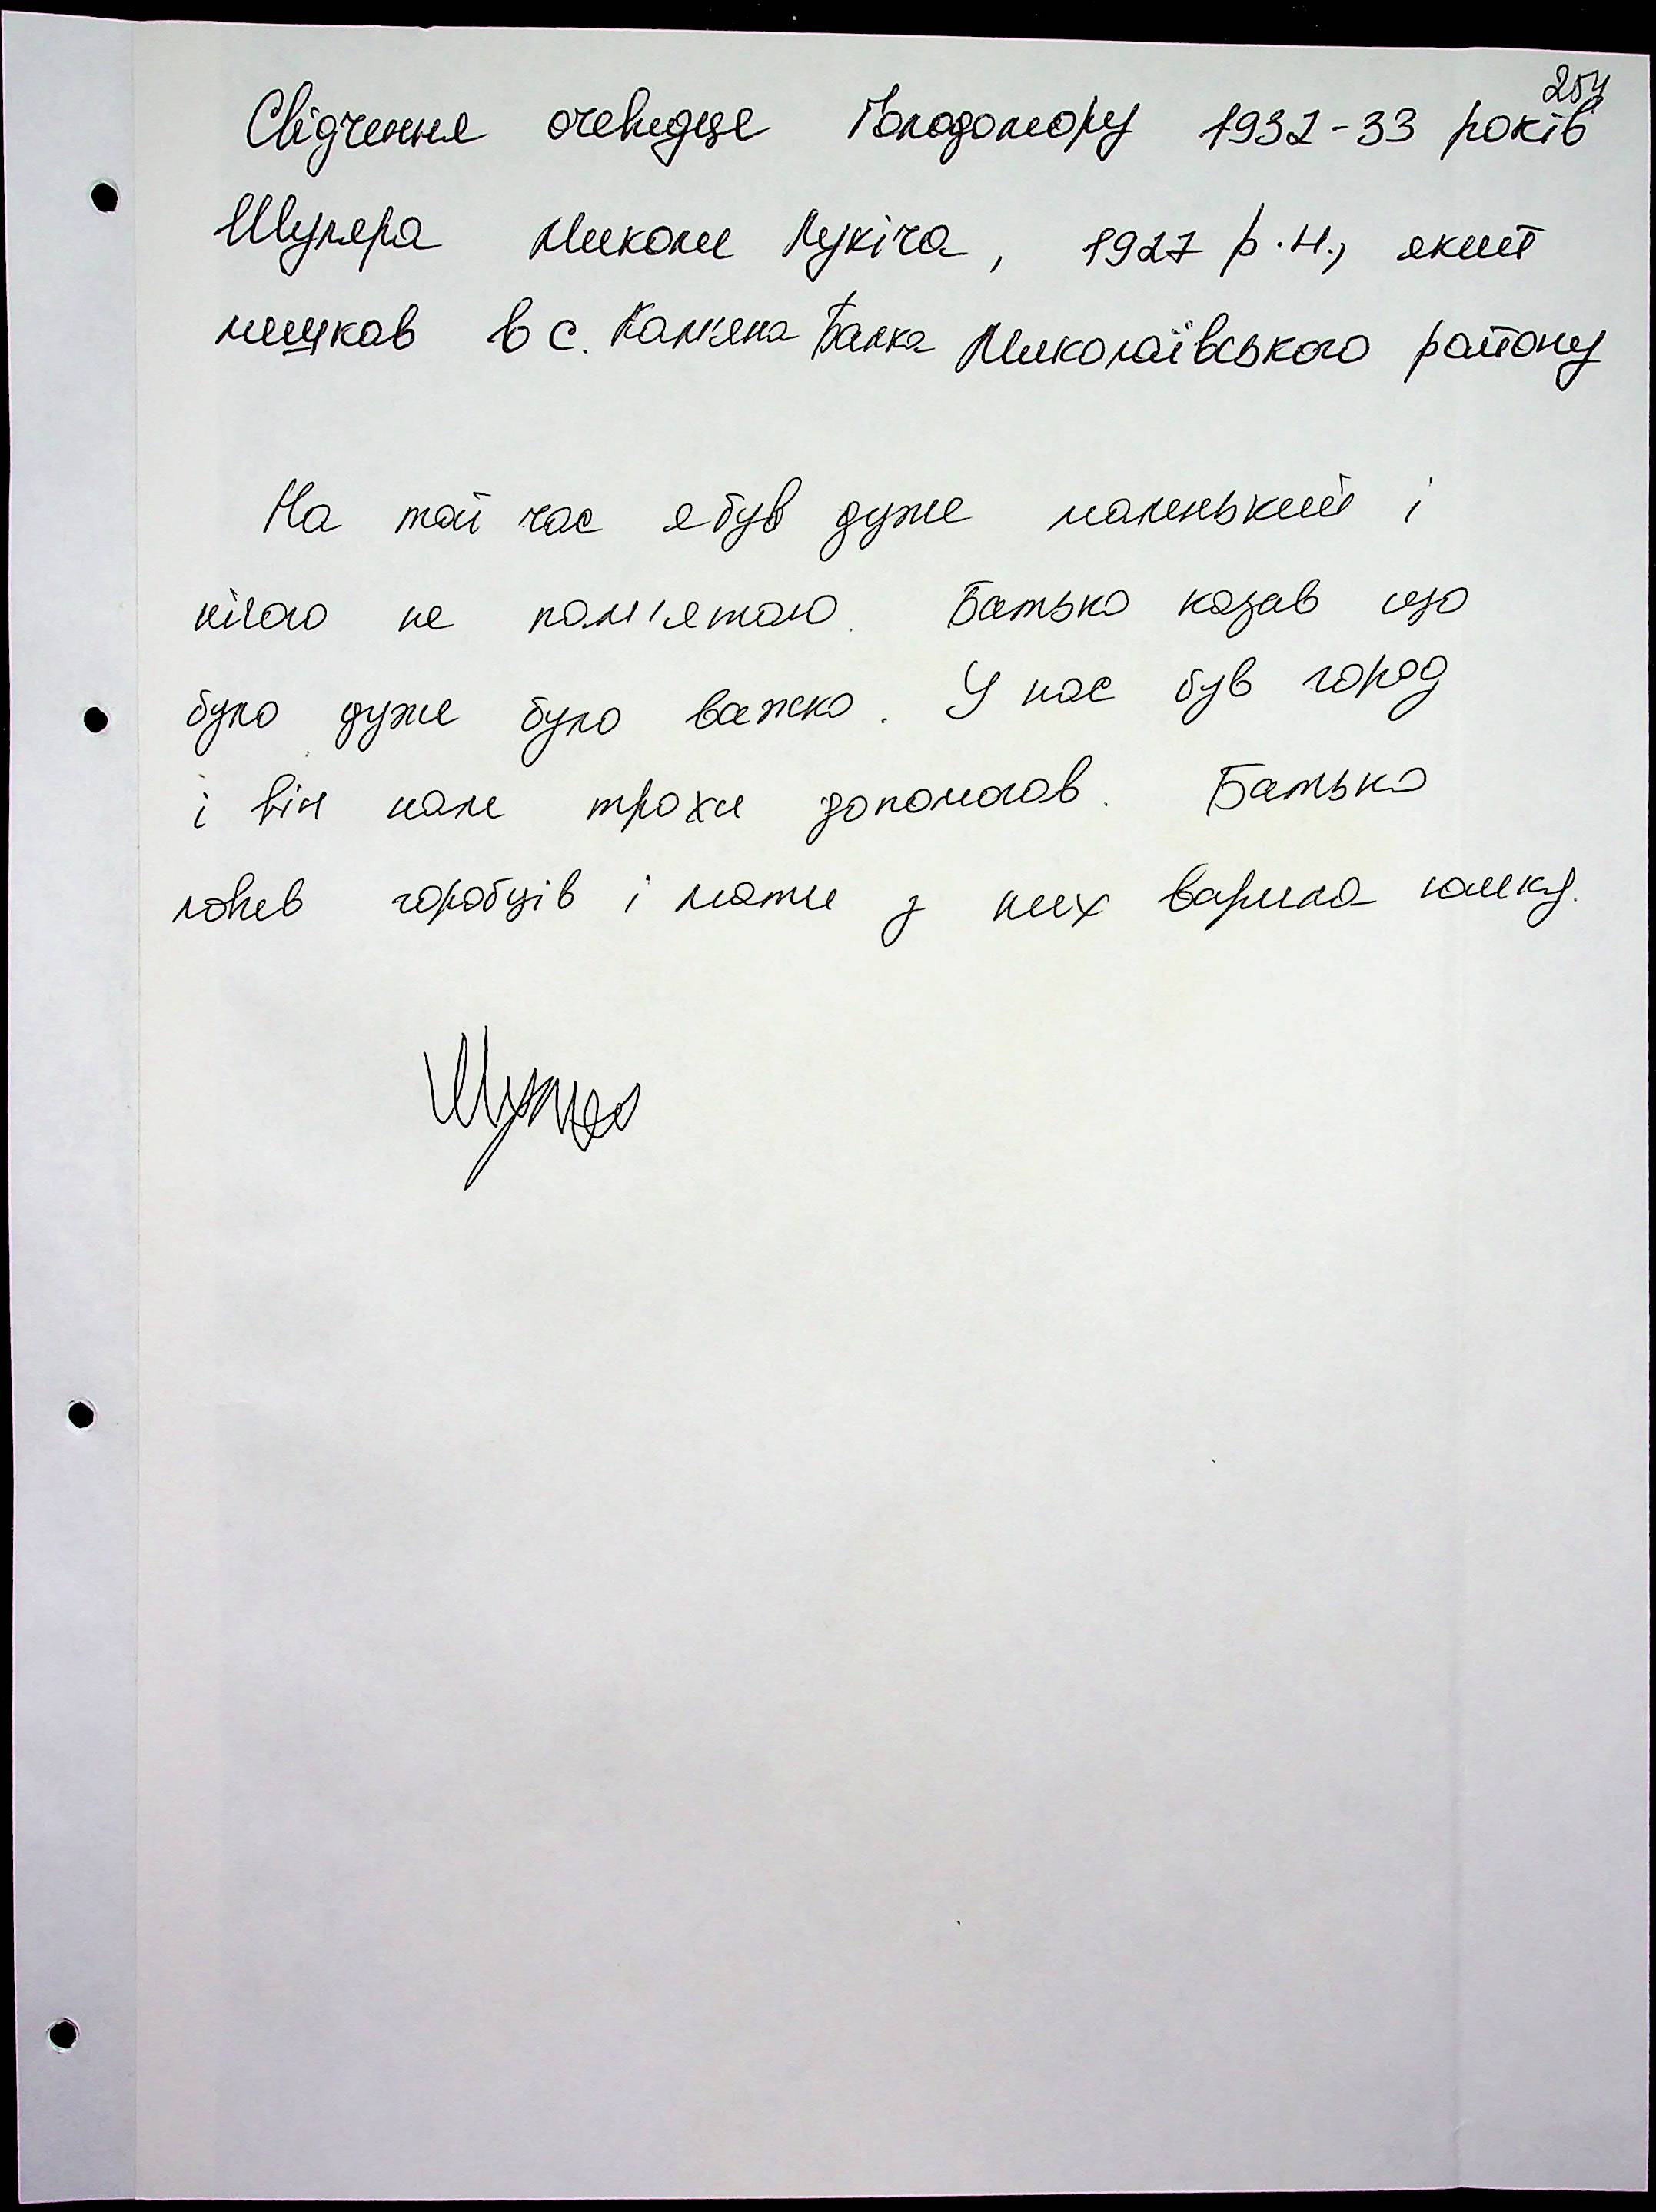 254
Свідчення очевидця Голодомору 1932-33 років
Шуляра Миколи Лукіча, 1927 р.н., який
мешкав в с. Кам'яна Балка Миколаївського району
На той час я був дуже маленький і
нічого не пам'ятаю. Батько казав що
було дуже було важко. У нас був город
і він нам трохи допомогав. Батько
ловив горобців і мати з них варила юшку.